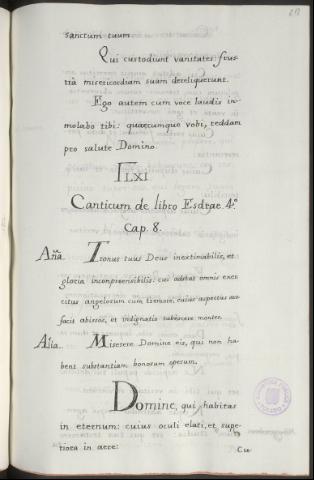 sanctum tuum.
Qui custodiunt vanitates: frus-
trà misericordiam suam dereliquerunt.
Ego autem cum voce laudis im-
molabo tibi: quæcumque vobi, reddam
pro salute Domino.
LXI
Canticum de libro Esdrae 4.º
Cap. 8.
Aña. Tronus tuus Deus inextimabilis, et
gloria inconprensibilis: cui adstat omnis exer-
citus angelorum cum tremore, cuius aspectus are-
facit abissos, et indignatio tabescere montes.
Alia. Miserere Domine eis, qui non ha-
bent substantiam bonorum operum.
Domine, qui habitas
in eternum: cuius oculi elati, et supe-
riora in aere:
Cu-